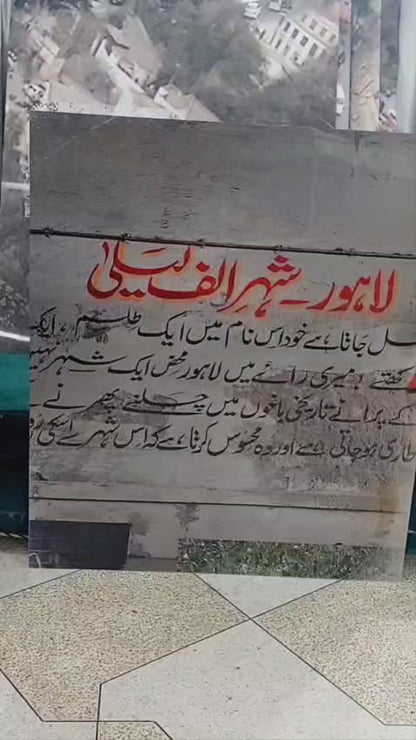 لاہور۔ شہرِ الف لیلیٰ
مل جاتا ہے خود اس نام میں ایک طلسم ، ایک
کہتے ، میری رائے میں لاہور محض ایک شہر نہیں
کے پرانے تاریخی باغوں میں چلنے پھرنے سے
طاری ہو جاتی ہے اور وہ محسوس کرتا ہے کہ اس شہر سے اسکی رو